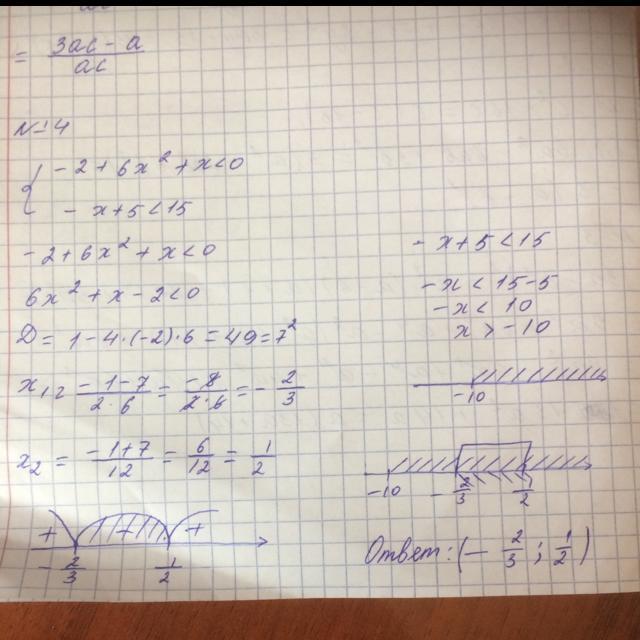 = (3ac - a)/(ac)
N=4
{ -2 + 6x² + x < 0
- x + 5 < 15
-2 + 6x² + x < 0
6x² + x - 2 < 0
D = 1 - 4·(-2)·6 = 49 = 7²
x₁ = (-1-7)/(2·6) = (-8)/(2·6) = - 2/3
x₂ = (-1+7)/12 = 6/12 = 1/2
+ + +
- 2/3 1/2
- x + 5 < 15
- x < 15 - 5
- x < 10
x > -10
-10
-10 - 2/3 1/2
Ответ: (- 2/3 ; 1/2)